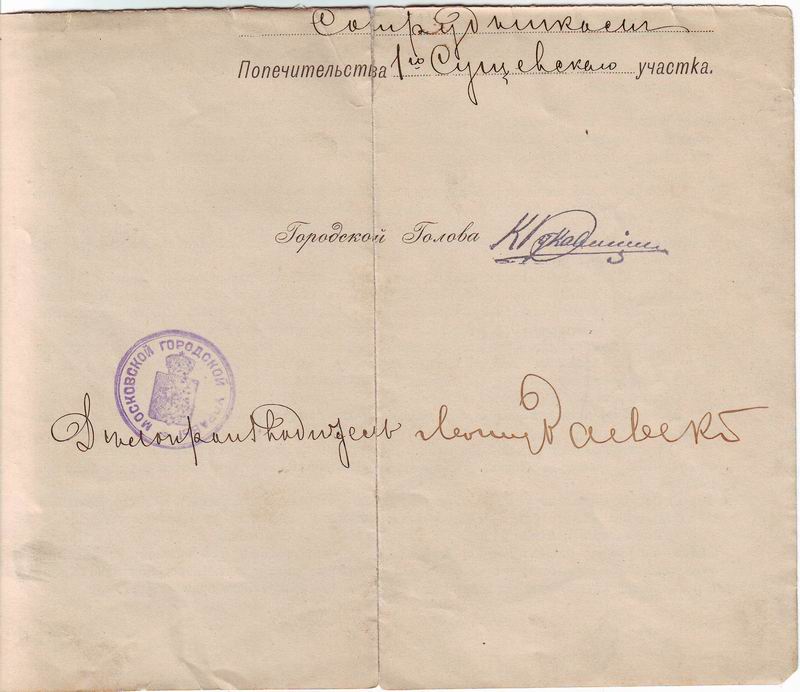 Сотрудникомъ
Попечительства 1го Сущевскаго участка.
Городской Голова
МОСКОВСКОЙ ГОРОДСКОЙ УПРАВЫ
Дѣлопроизводитель